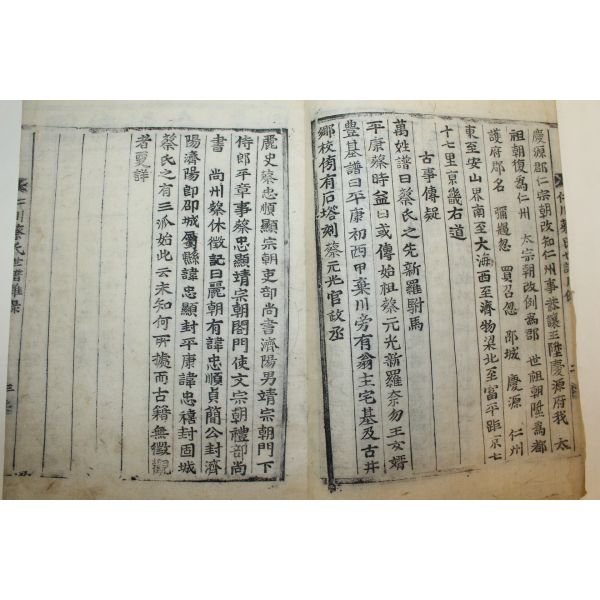 慶源郡仁宗朝改知仁州事恭讓王陞慶源府我 太
祖朝復爲仁州 太宗朝改例爲郡 世祖朝陞爲都
護府郡名 彌鄒忽 買召忽 邵城 慶源 仁州
東至安山界南至大海西至濟物梁北至富平距京七
十七里京畿右道
古事傳疑
萬姓譜曰蔡氏之先新羅駙馬
平康蔡時益曰或傳始祖蔡元光新羅奈勿王女婿
豊基譜曰平康初西甲棄川旁有翁主宅基及古井
鄉校傍有石塔刻蔡元光官政丞
麗史蔡忠順顯宗朝吏部尚書濟陽男靖宗朝門下
侍郎平章事蔡忠顯靖宗朝閤門使文宗朝禮部尚
書 尚州蔡休徵記曰麗朝有諱忠順貞簡公封濟
陽濟陽卽邵城屬縣諱忠顯封平康諱忠穡封固城
蔡氏之有三派始此云未知何所據而古籍無徵觀
者更詳
仁川蔡氏世譜雜錄